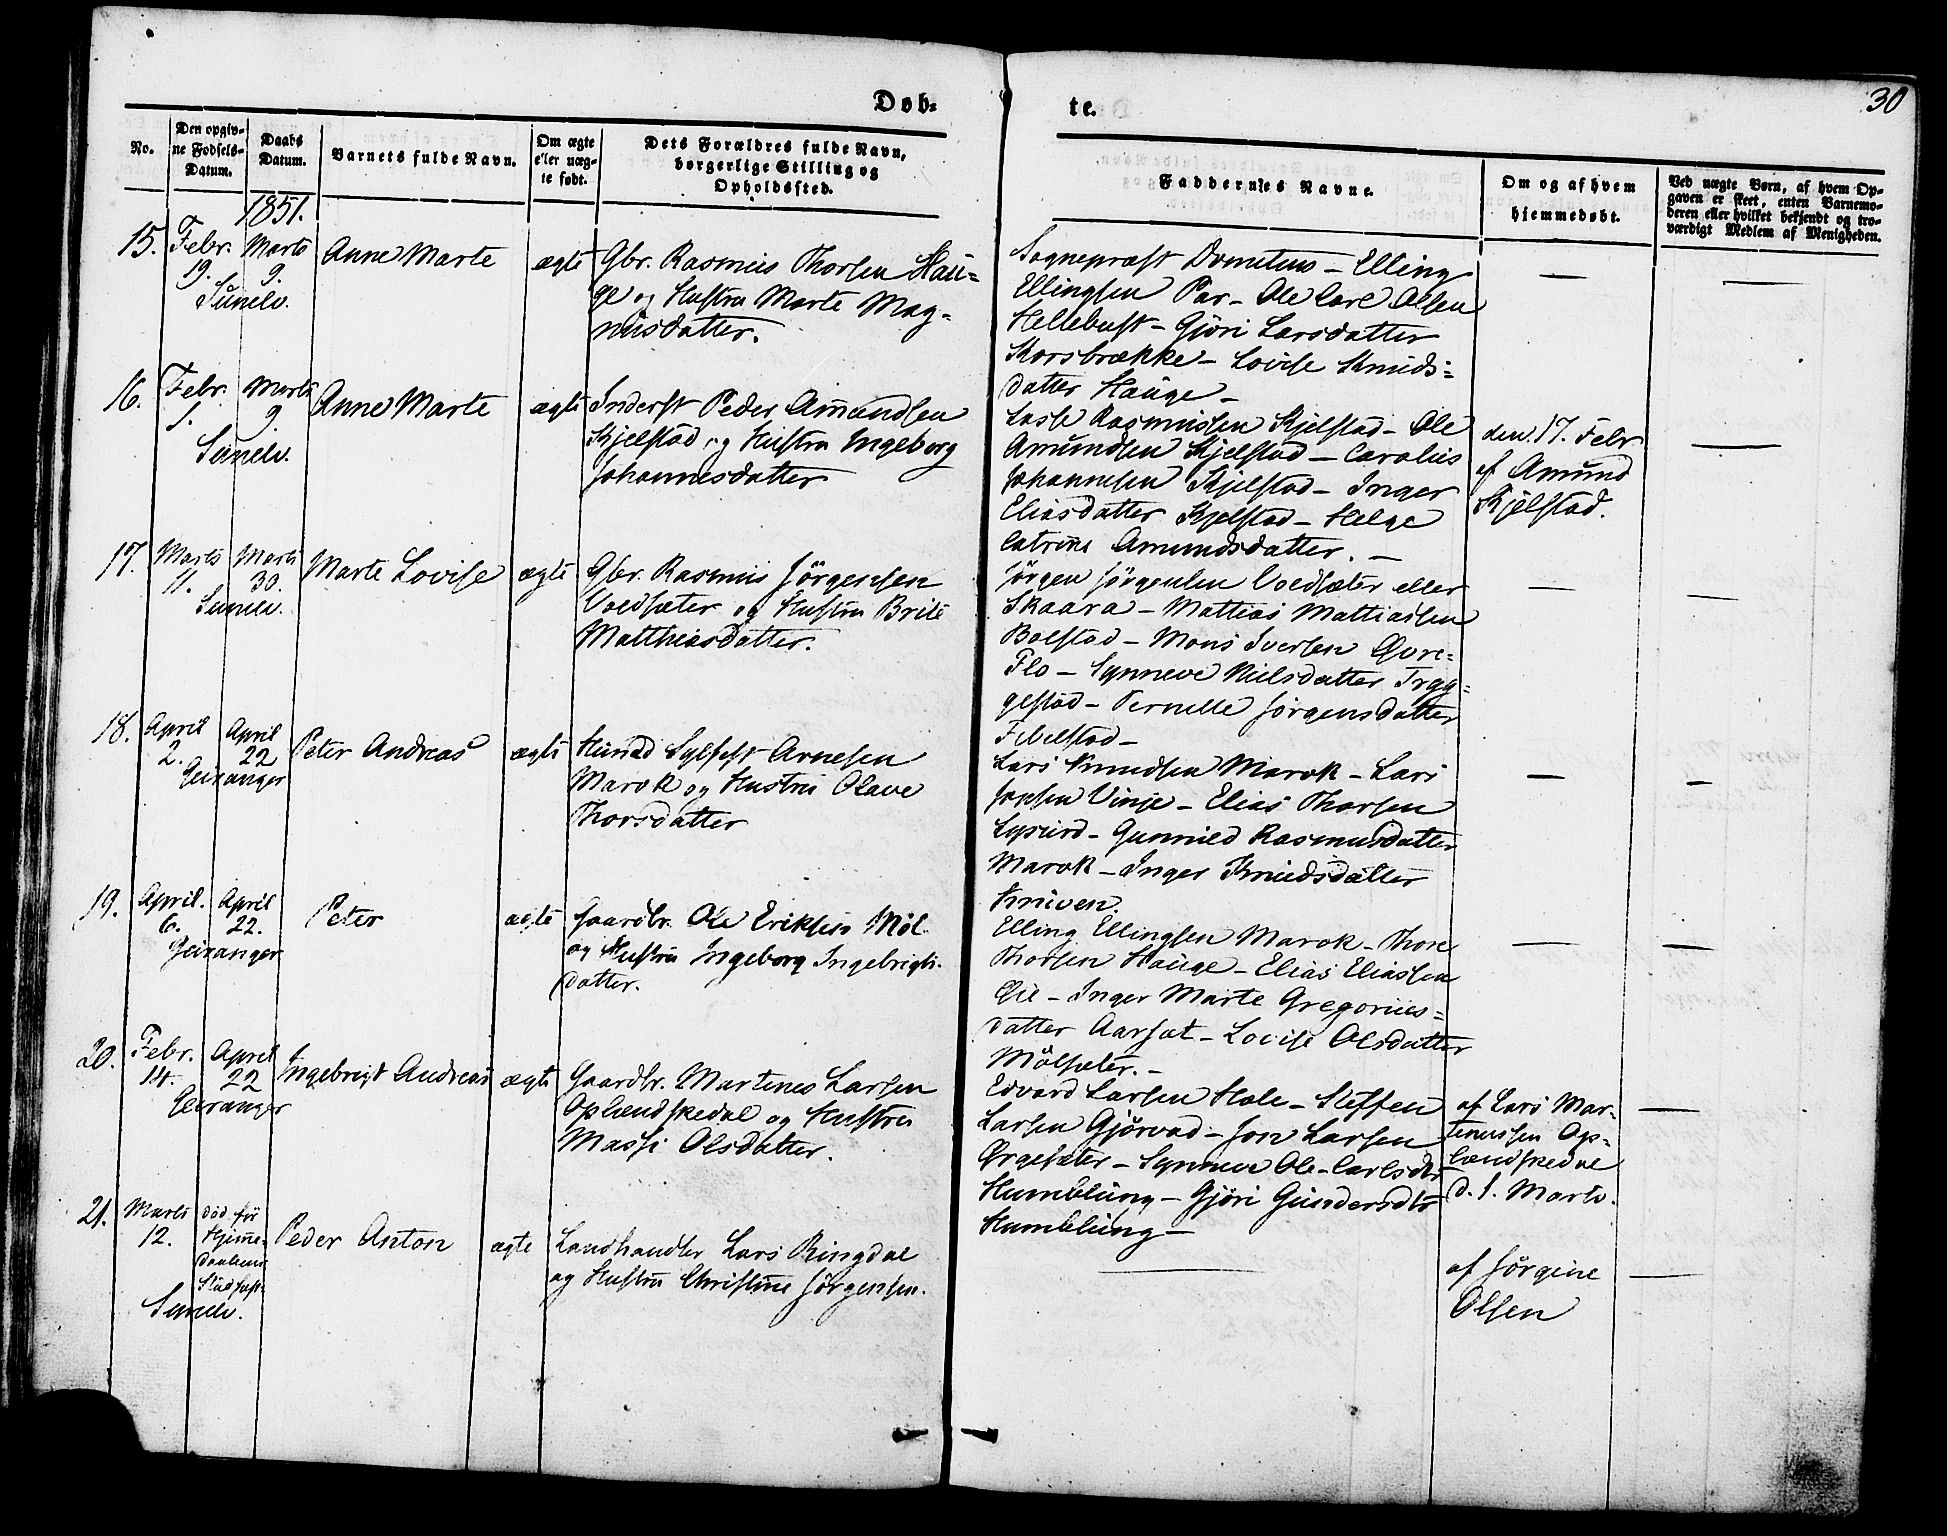 Døb=
te.
30
No.
Den opgiv-
ne Fødsels-
Datum.
Daabs
Datum.
Barnets fulde Navn.
Om ægte
eller uæg-
te født.
Dets Forældres fulde Navn,
borgerlige Stilling og
Opholdssted.
Faddernes Navne.
Om og af hvem
hjemmedøbt.
Ved uægte Børn, af hvem Op-
gaven er skeet, enten Barnemo-
deren eller hvilket bekjendt og tro-
værdigt Medlem af Menigheden.
1851.
15.
Febr.
19.
Marts
9.
Sunelv.
Anne Marte
ægte
Gbr. Rasmus Thorsen Hau=
ge og Hustru Marte Mag=
nusdatter.
Sognepræst - Elling
Ellingsen - Ole Carl Olsen
Hellebust - Gjøri Larsdatter
Korsbrække - Lovise Knuds=
datter Hauge -
—
—
16.
Febr.
1.
Marts
9.
Sunelv.
Anne Marte
ægte
Inderst Peder Amundsen
Kjelstad og Hustru Ingeborg
Johannesdatter
Lasse Rasmussen Kjelstad - Ole
Amundsen Kjelstad - Carolus
Johannesen Kjelstad - Inger
Eliasdatter Kjelstad - Helge
Catrine Amundsdatter. -
den 17. Febr
af Amund
Kjelstad.
—
17.
Marts
11.
Marts
30.
Sunelv.
Marte Lovise
ægte
Gbr. Rasmus Jørgensen
Voldsæter og Hustru Brite
Matthiasdatter.
Jørgen Jørgensen Voldsæter eller
Skaara - Mattias Mattiassen
Bolstad - Mons Iversen Øvre=
Flo - Synneve Nielsdatter Tryg=
gestad - Pernelle Jørgensdatter
Fivelstad -
—
—
18.
April
2.
April
22
Geiranger
Peter Andreas
ægte
Husmd Sylfest Arnesen
Marok og Hustru Olave
Thorsdatter
Lars Knudsen Marok - Lars
Vinje - Elias Thorsen
- Gunnild Rasmusdatter
Marok - Inger Knudsdatter
Kniven.
—
—
19.
April.
6.
April
22.
Geiranger
Peter
ægte
Gaardbr. Ole Eriksen Møl
og Hustru Ingeborg Ingebrigts-
datter.
Elling Ellingsen Marok - Thore
Thorsen Hauge - Elias Eliassen
Gie - Inger Marte Gregorius=
datter - Lovise Olsdatter
Mølsæter. -
—
—
20.
Febr.
14.
April
22
Geiranger
Ingebrigt Andreas
ægte
Gaardbr. Martinus Larsen
Oplændskedal og Hustru
Massi Olsdatter.
Edvard Larsen Hole - Steffen
Larsen Gjørvad - Jon Larsen
Ørgesæter - Synneve Ole-Carlsdtr
Humblung - Gjøri Gundersdtr
Humblung -
af Lars Mar-
tinussen Op-
lændskedal
d. 1. Marts.
—
21.
Marts
12.
død før
Hjemme-
daabens
Stadfæst.
Sunelv.
Peder Anton
ægte
Landhandler Lars Ringdal
og Hustru Christine Jørgensen.
—
af Jørgine
Olsen
—